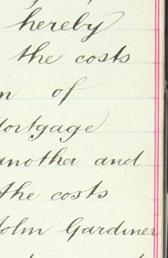 hereby
the costs
of
Mortgage
another and
the costs
John Gardiner